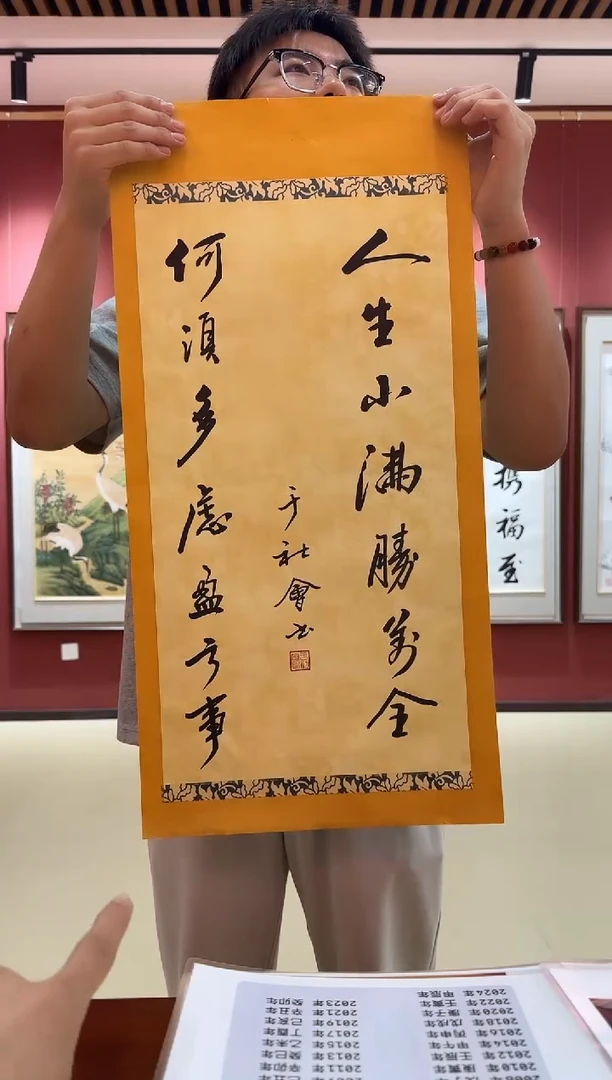 人生小滿勝萬全
何須多慮盈亏事
于社會书
携福至
2010年 庚寅年 2011年 辛卯年
2012年 壬辰年 2013年 癸巳年
2014年 甲午年 2015年 乙未年
2016年 丙申年 2017年 丁酉年
2018年 戊戌年 2019年 己亥年
2020年 庚子年 2021年 辛丑年
2022年 壬寅年 2023年 癸卯年
2024年 甲辰年